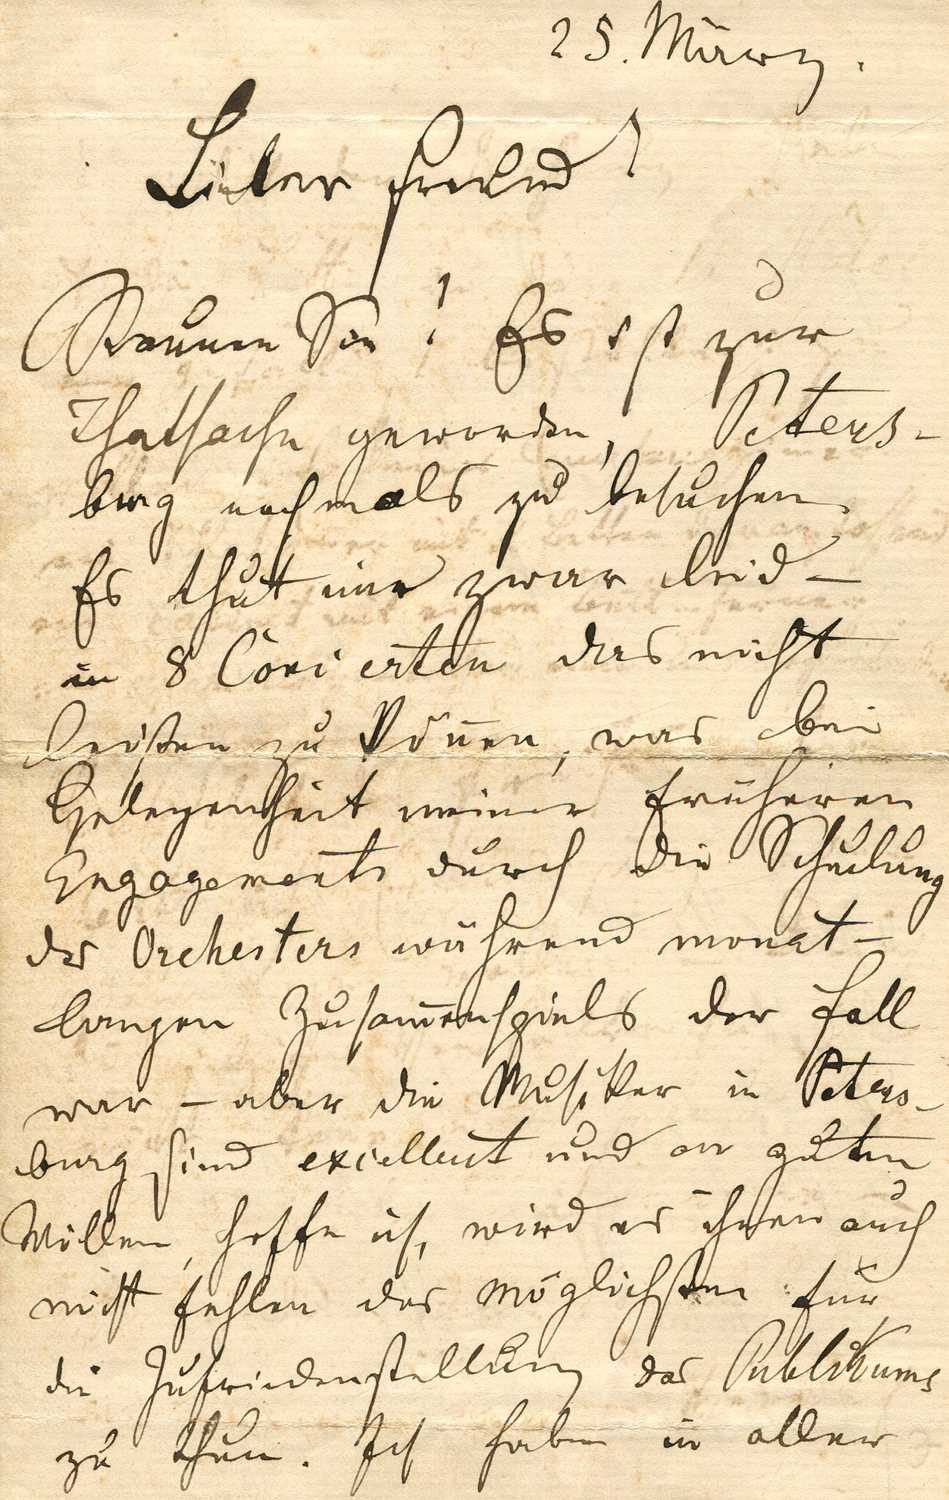 25. März.
Lieber Freund!
Staunen Sie! Es ist zur
Thatsache geworden, Peters-
burg nochmals zu besuchen.
Es thut mir zwar leid –
in 8 Concerten das nicht
leisten zu können, was bei
Gelegenheit meiner früheren
Engagements durch die Schulung
des Orchesters während monat-
langen Zusammenspiels der Fall
war – aber die Musiker in Peters-
burg sind excellent und an gutem
Willen, hoffe ich, wird es ihnen auch
nicht fehlen das möglichste für
die Zufriedenstellung des Publikums
zu thun. Ich habe in aller